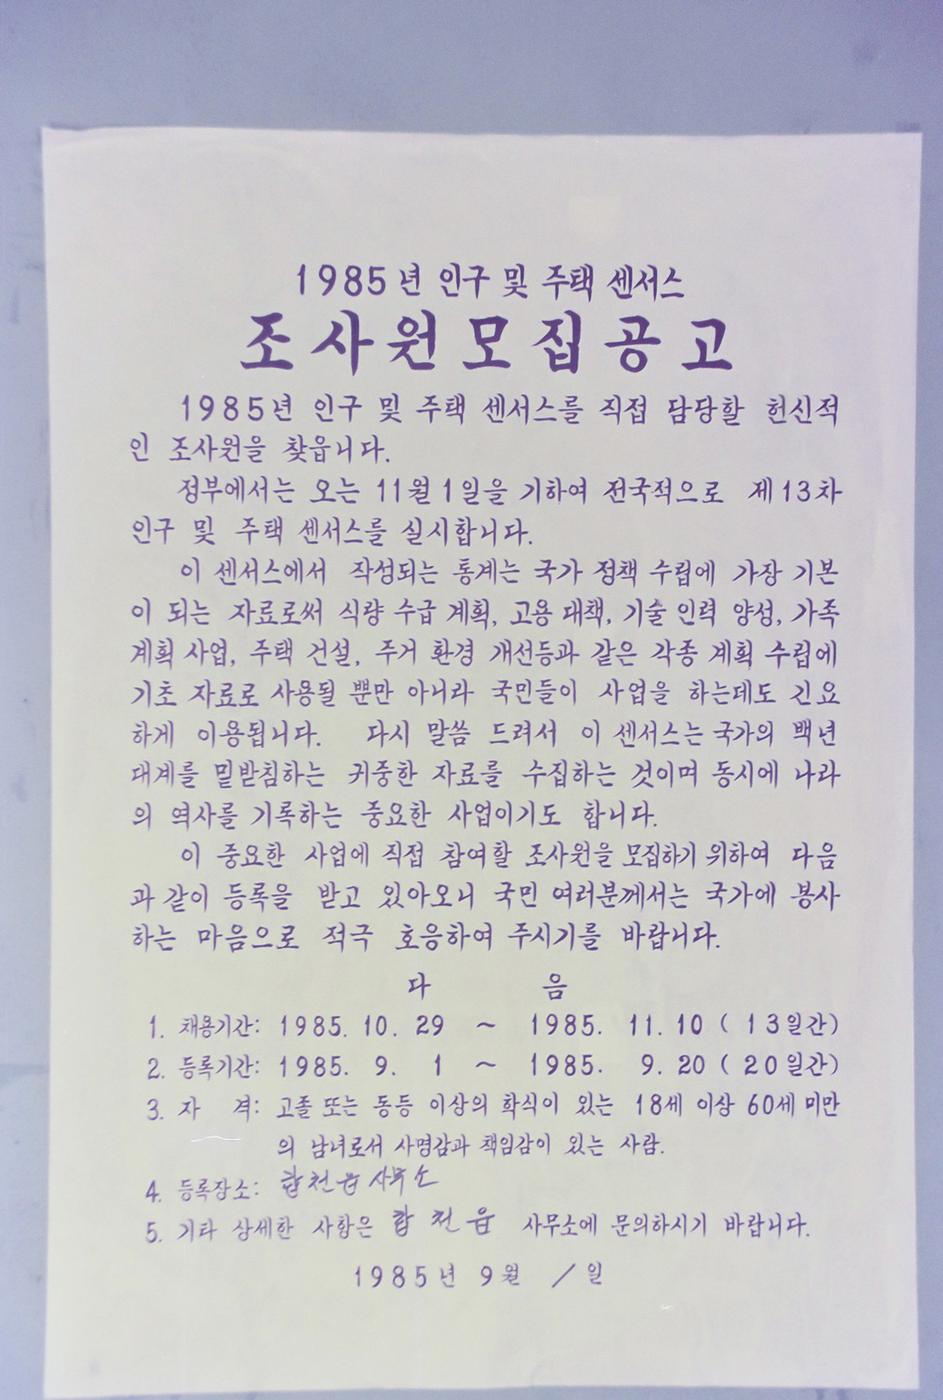 1985년 인구 및 주택 센서스
조사원모집공고
1985년 인구 및 주택 센서스를 직접 담당할 헌신적
인 조사원을 찾읍니다.
정부에서는 오는 11월 1일을 기하여 전국적으로 제13차
인구 및 주택 센서스를 실시합니다.
이 센서스에서 작성되는 통계는 국가 정책 수립에 가장 기본
이 되는 자료로써 식량 수급 계획, 고용 대책, 기술 인력 양성, 가족
계획 사업, 주택 건설, 주거 환경 개선등과 같은 각종 계획 수립에
기초 자료로 사용될 뿐만 아니라 국민들이 사업을 하는데도 긴요
하게 이용됩니다. 다시 말씀 드려서 이 센서스는 국가의 백년
대계를 밑받침하는 귀중한 자료를 수집하는 것이며 동시에 나라
의 역사를 기록하는 중요한 사업이기도 합니다.
이 중요한 사업에 직접 참여할 조사원을 모집하기 위하여 다음
과 같이 등록을 받고 있아오니 국민 여러분께서는 국가에 봉사
하는 마음으로 적극 호응하여 주시기를 바랍니다.
다 음
1. 채용기간: 1985. 10. 29 ~ 1985. 11. 10 ( 13일간)
2. 등록기간: 1985. 9. 1 ~ 1985. 9. 20 ( 20일간)
3. 자 격: 고졸 또는 동등 이상의 학식이 있는 18세 이상 60세 미만
의 남녀로서 사명감과 책임감이 있는 사람.
4. 등록장소: 합천읍 사무소
5. 기타 상세한 사항은 합천읍 사무소에 문의하시기 바랍니다.
1985년 9월 / 일